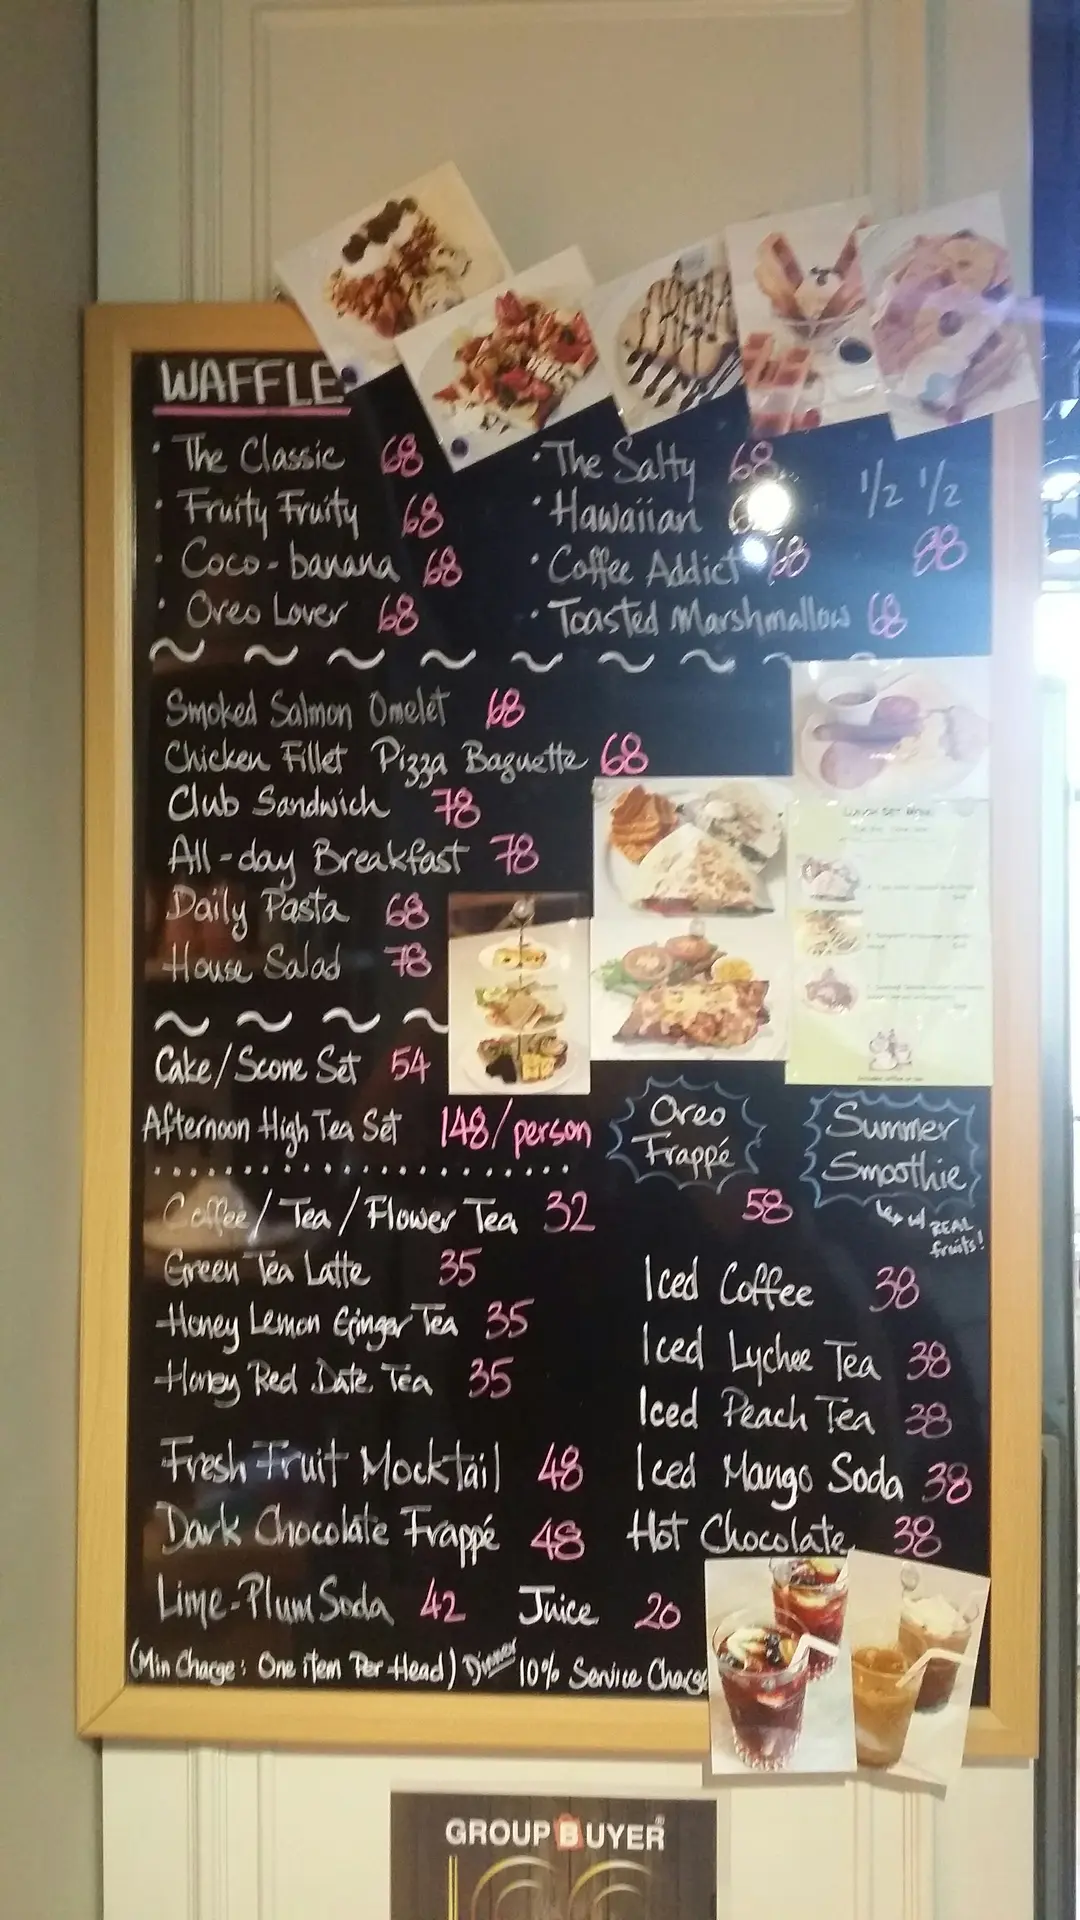 WAFFLE
· The Classic 68
· Fruity Fruity 68
· Coco-banana 68
· Oreo Lover 68
· The Salty 68
· Hawaiian
· Coffee Addict 68
· Toasted Marshmallow 68
1/2 1/2
88
Smoked Salmon Omelet 68
Chicken Fillet Pizza Baguette 68
Club Sandwich 78
All-day Breakfast 78
Daily Pasta 68
House Salad 78
Cake/Scone Set 54
Afternoon High Tea Set 148/person
Coffee/Tea/Flower Tea 32
Green Tea Latte 35
Honey Lemon Ginger Tea 35
Honey Red Date Tea 35
Fresh Fruit Mocktail 48
Dark Chocolate Frappé 48
Lime-Plum Soda 42
Juice 20
Oreo
Frappé
58
Summer
Smoothie
w/ REAL
fruits!
Iced Coffee 38
Iced Lychee Tea 38
Iced Peach Tea 38
Iced Mango Soda 38
Hot Chocolate 38
(Min Charge: One item Per Head) Dinner 10% Service Charge
GROUP BUYER